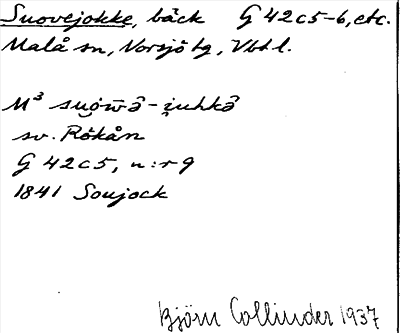 Suovejokke, bäck G 42 c 5-6, etc.
Malå sn, Norsjö tg, Vbtl.
M³ suo̯w̄â-i̯uhkâ
sv. Rökån
G 42 c 5, n:r 9
1841 Soujock
Björn Collinder 1937